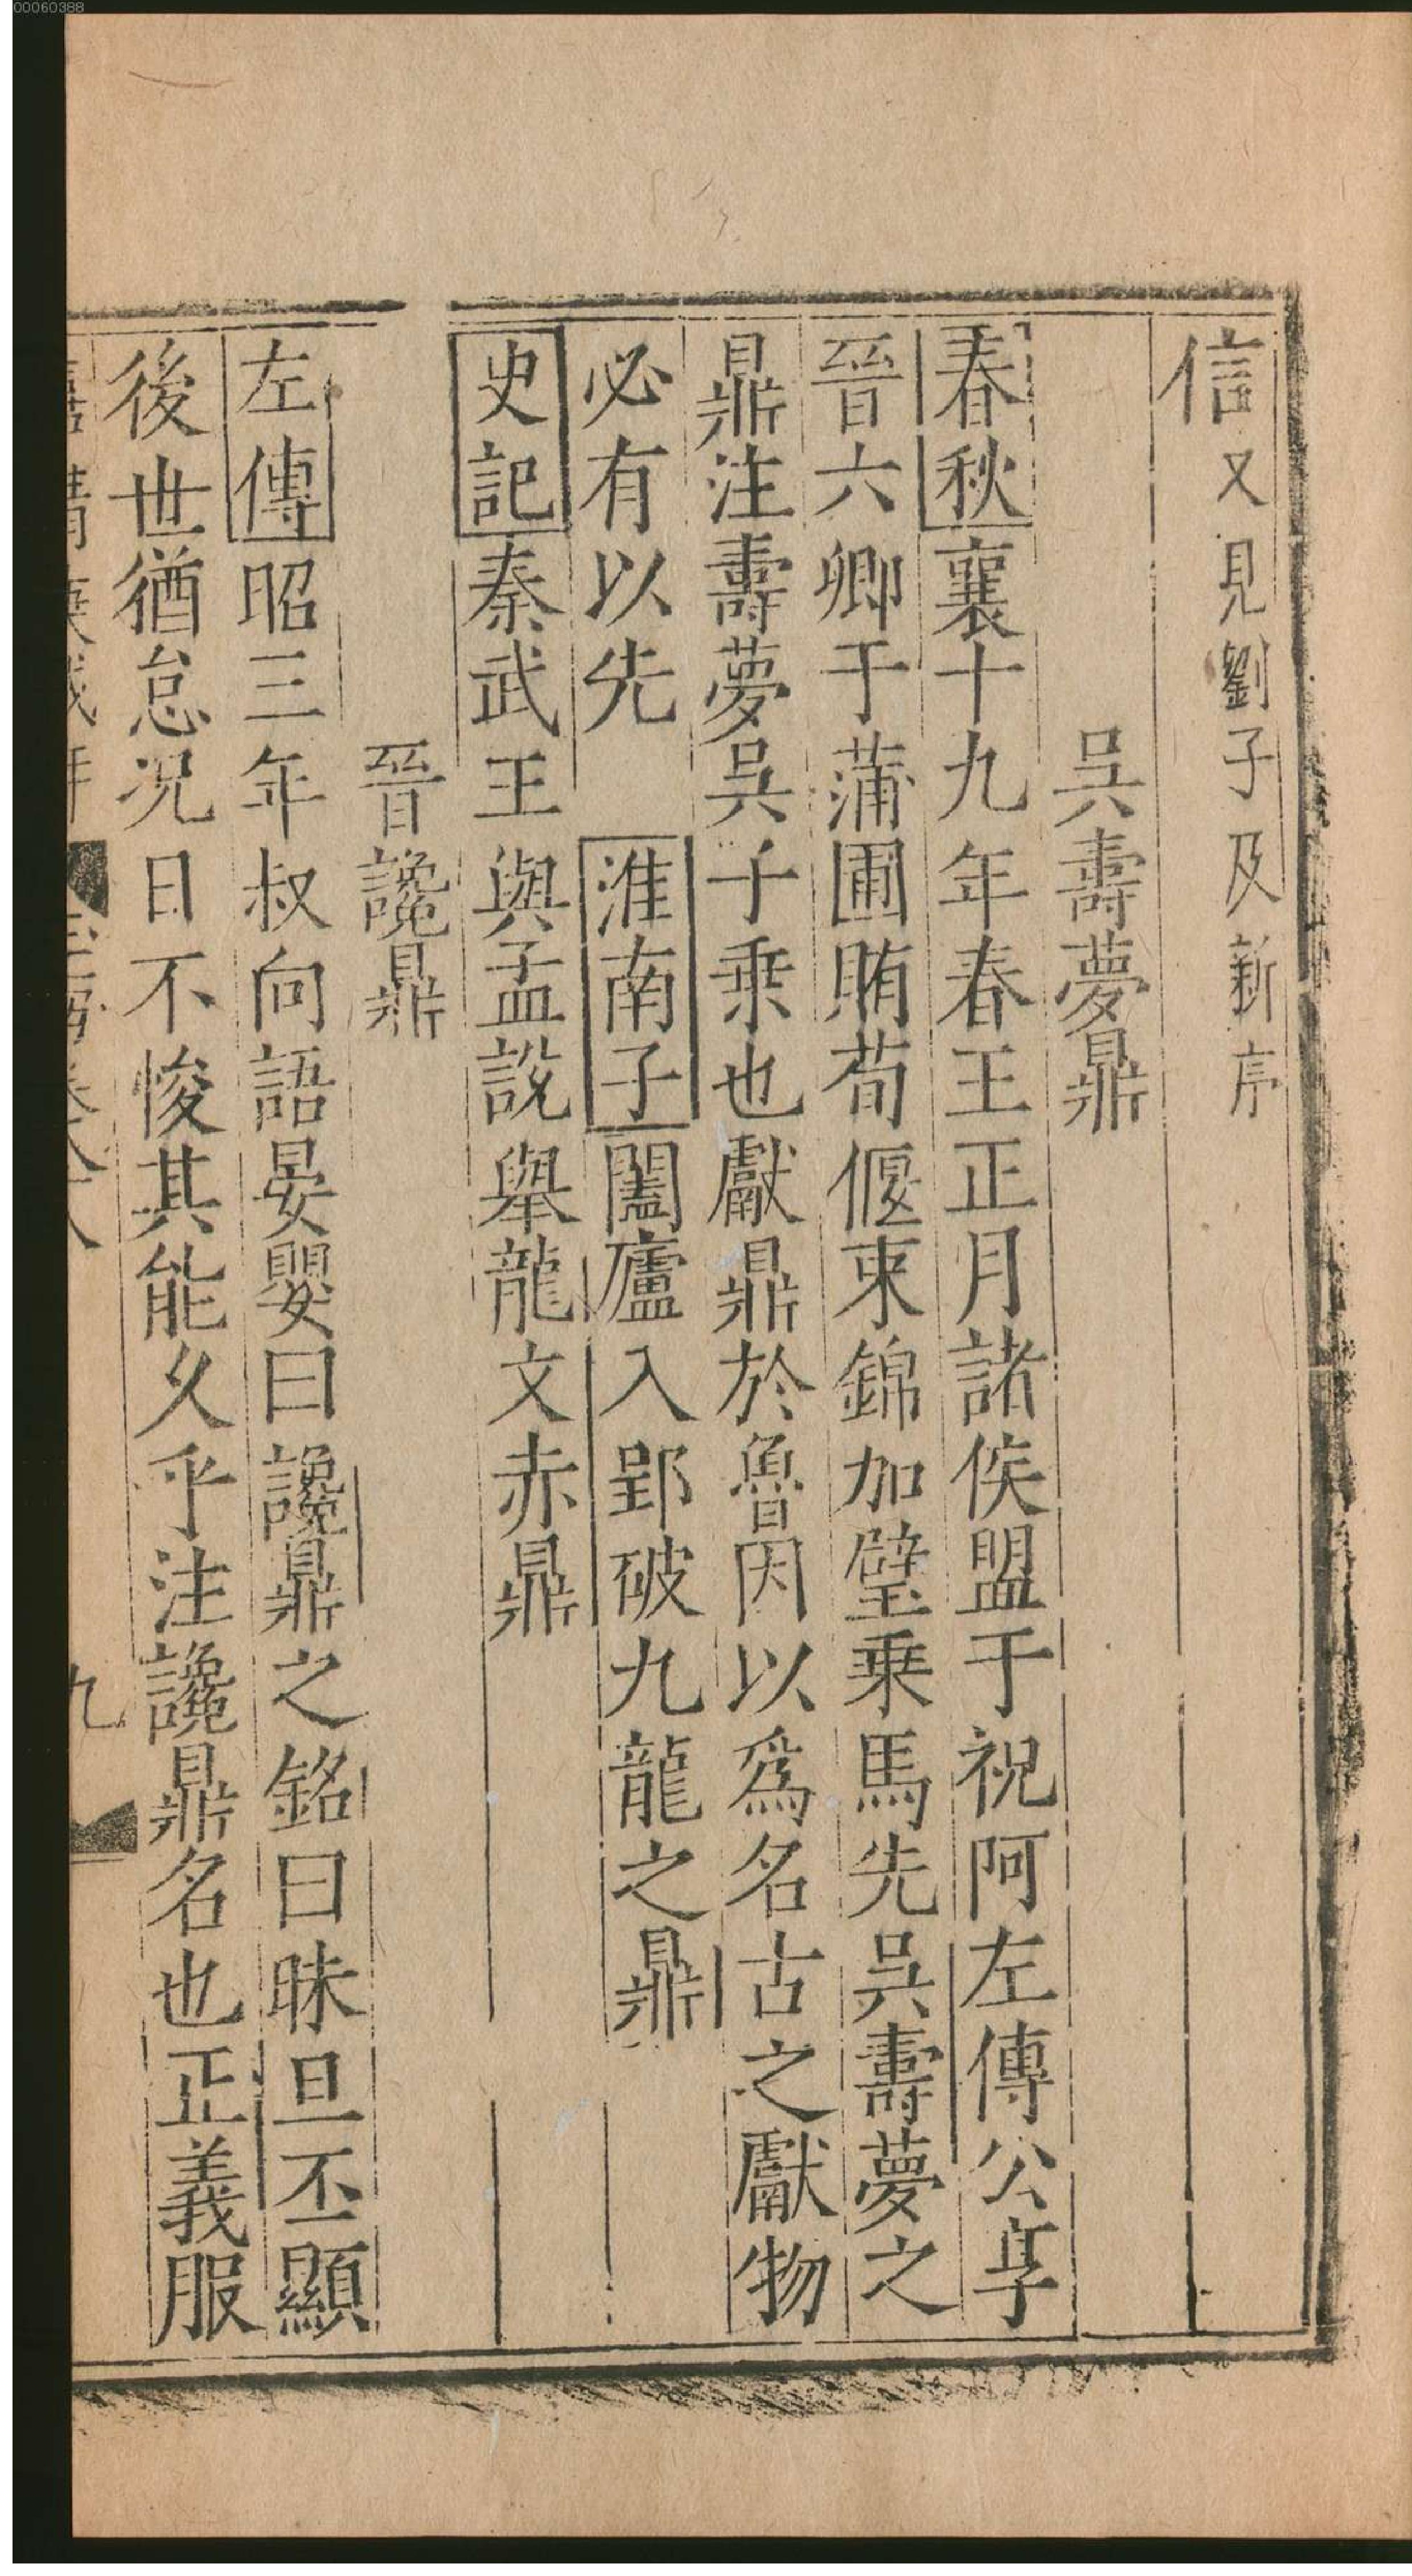 00060388
信又見劉子及新序
吳壽夢鼎
春秋襄十九年春王正月諸侯盟于祝阿左傳公享
晉六卿于蒲圃賄荀偃束錦加璧乗馬先吳壽夢之
鼎注壽夢吳子乗也獻鼎於魯因以爲名古之獻物
必有以先 淮南子闔廬入郢破九龍之鼎
史記秦武王與孟說舉龍文赤鼎
晉讒鼎
左傳昭三年叔向語晏嬰曰讒鼎之銘曰昧旦丕顯
後世猶怠况日不悛其能久乎注讒鼎名也正義服
九